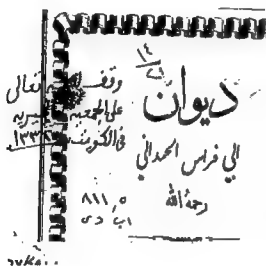 ١٤
٢١
ديوان
ابي فراس الحمداني
رحمه الله
وقف لله تعالى
على الجمعية الخيرية
في الكويت
٨١١,٥
اب دى